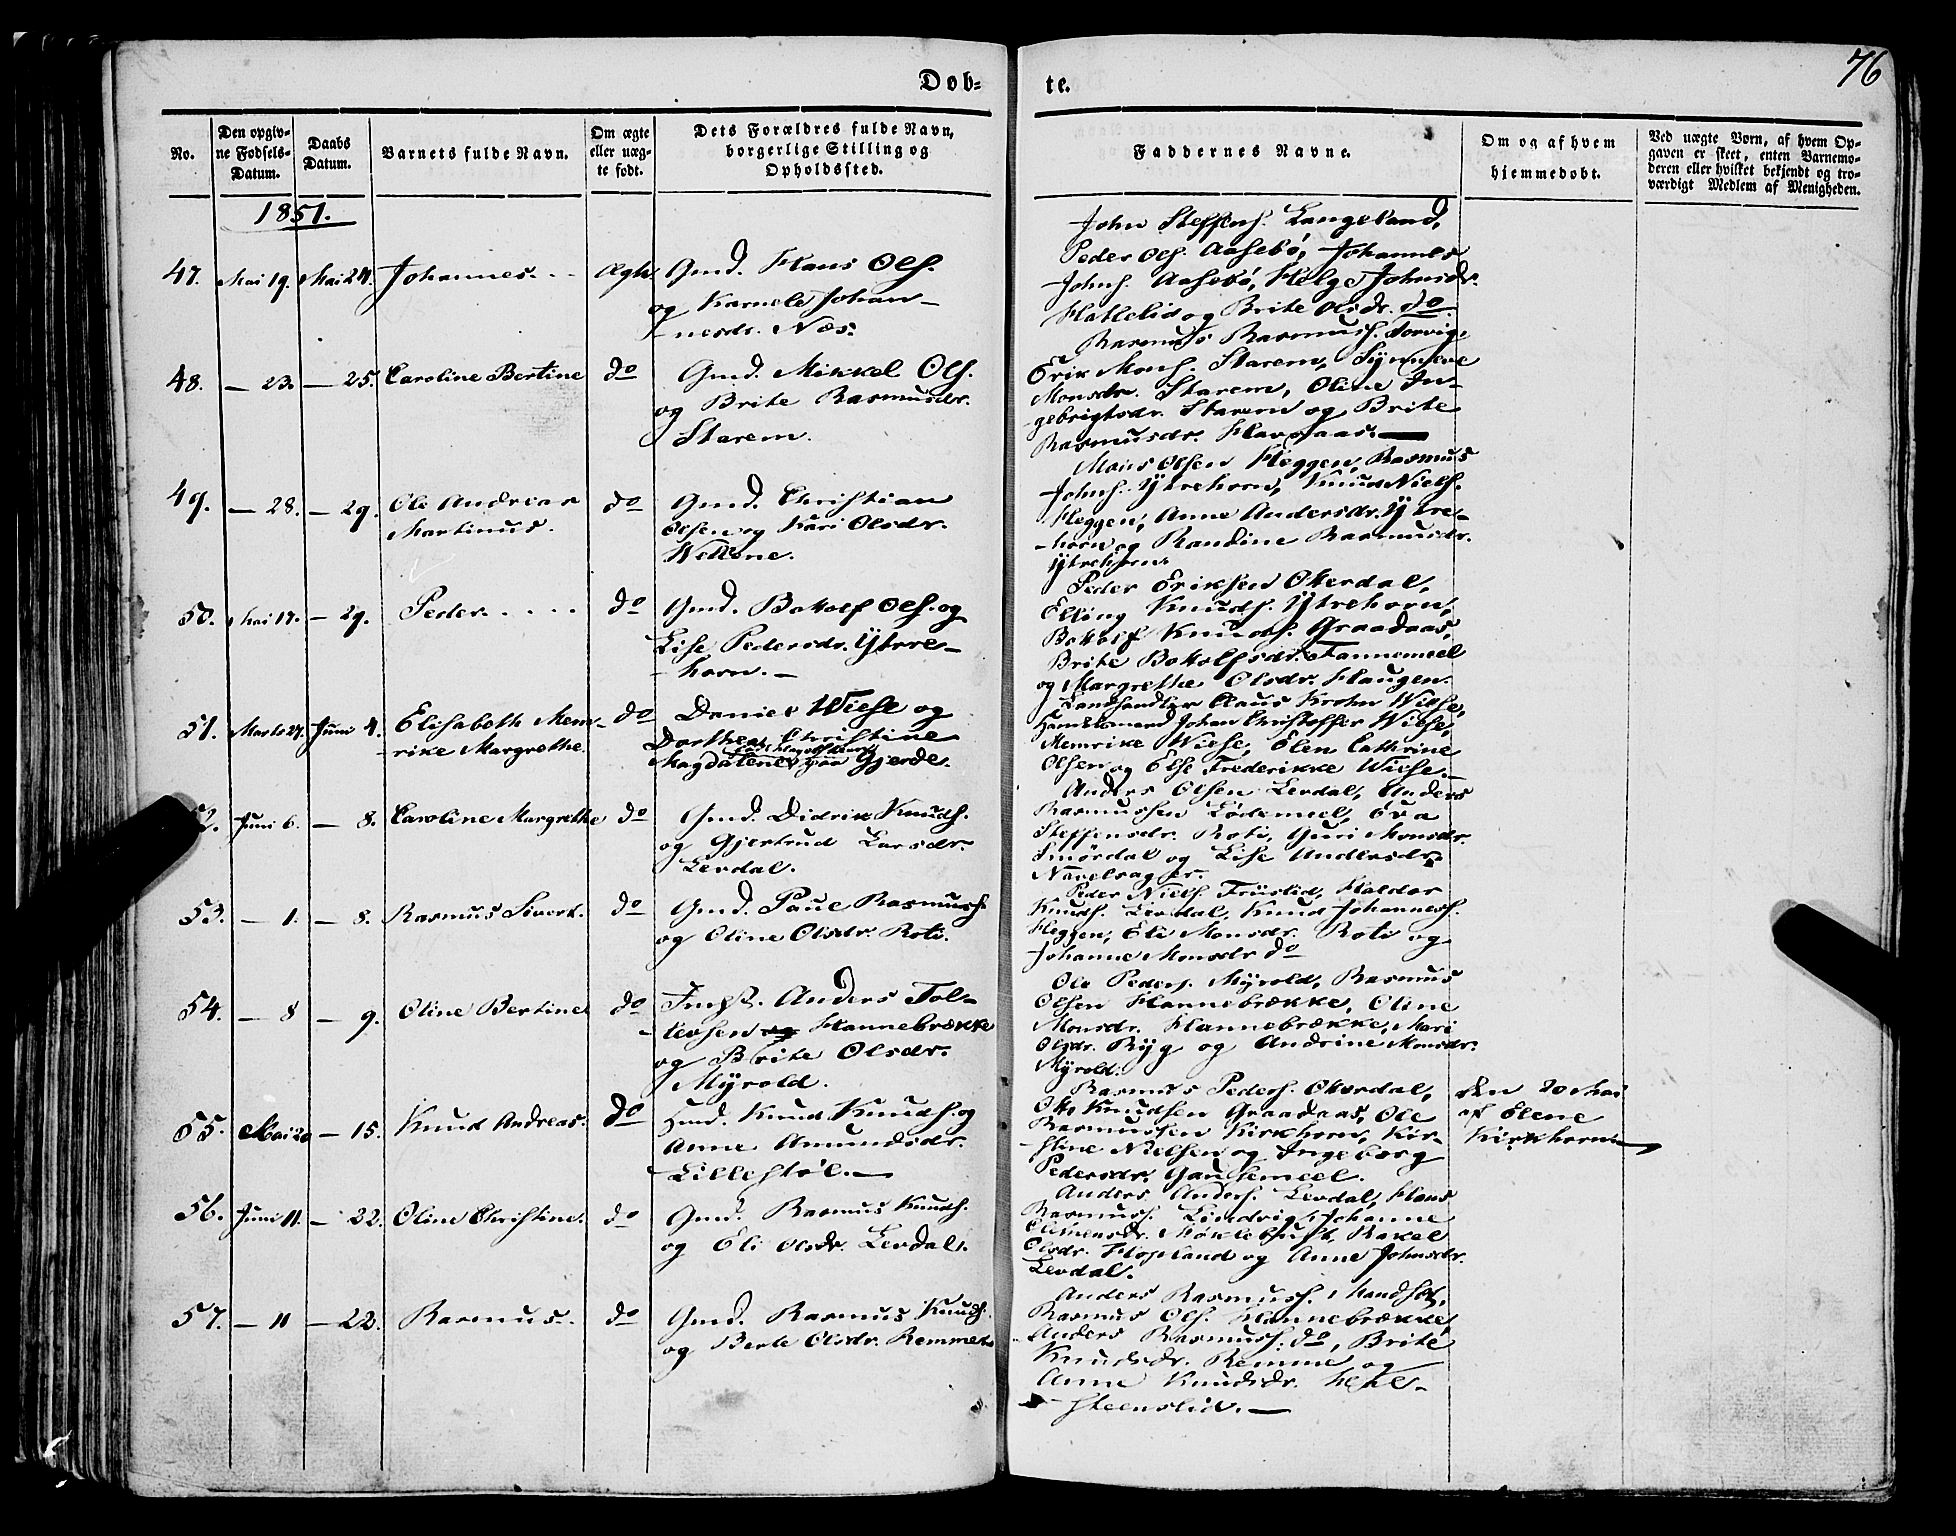 76
Døb-
te.
No.
Den opgiv-
ne Fødsels-
Datum.
Daabs
Datum.
Barnets fulde Navn.
Om ægte
eller uæg-
te født.
Dets Forældres fulde Navn,
borgerlige Stilling og
Opholdssted.
Faddernes Navne.
Om og af hvem
hjemmedøbt.
Ved uægte Børn, af hvem Op-
gaven er skeet, enten Barnemo-
deren eller hvilket bekjendt og tro-
værdigt Medlem af Menigheden.
1851.
47. Mai 19. Mai 24. Johannes. Ægte
Gmd. Hans Ols.
og Karnele Johan-
nesdr. Næs.
John Steffens. Langeland,
Peder Ols. Aasebø, Johannes
Johns. Aasebø, Helge Johnsdr.
Hatlelid og Brite Olsdr. do.
48. — 23. — 25. Caroline Bertine do
Gmd. Mikkel Ols.
og Brite Rasmusdr.
Starem.
Rasmus Rasmuss. Torvig,
Erik Mons. Starem, Synneve
Monsdr. Starem, Oline In-
gebrigtsdr. Starem og Brite
Rasmusdr. Havraas.
49. — 28. — 29. Ole Andreas
Martinus. do
Gmd. Christian
Olsen og Kari Olsdr.
Wettone.
Mons Olsen Heggen, Rasmus
Johns. Ytrehorn, Knud Niels.
Heggen, Anne Andersdr. Ytre-
horn og Randine Rasmusdr.
Ytrehorn
50. Mai 17. — 29. Peder. do
Gmd. Bottolf Ols. og
Lise Pedersdr. Ytre-
horn. —
Peder Eriksen Otterdal,
Elling Knuds. Ytrehorn,
Bottolf Knuds. Graadaas,
Brite Bottolfsdr. Tannemeel
og Margrethe Olsdr. Haugen.
51. Marts 27. Juni 4. Elisabeth Mem-
rike Margrethe. do
Daniel Wiese og
Dorthea Christine
Magdalene paa Gjerde.
Landhandler Claus Krohn Wiese,
Handelsmand Johan Christoffer Wiese,
Memrike Wiese, Elen Cathrine
Olsen og Else Frederikke Wiese. —
52. Juni 6. — 8. Caroline Margrethe do
Gmd. Didrik Knuds.
og Gjertrud Larsdr.
Levdal.
Anders Olsen Levdal, Anders
Rasmussen Lødemeel, Eva
Steffensdr. Roti, Guri Monsdr.
Smørdal og Lise Andersdr.
Navelsager.
53. — 1. — 8. Rasmus Sivert. do
Gmd. Paul Rasmuss.
og Oline Olsdr. Roti.
Peder Niels. Fruslid, Haldor
Knuds. Levdal, Knud Johanness.
Heggen, Eli Monsdr. Roti og
Johanne Monsdr do
54. — 8 — 9. Oline Bertine do
Indst. Anders Tol-
levsen Hannebrække
og Brite Olsdr.
Myrold.
Ole Peders. Myrold, Rasmus
Olsen Hannebrække, Oline
Monsdr. Hannebrække, Mari
Olsdr. Ryg og Andrine Monsdr.
Myrold.
55. Mai 20 — 15. Knud Andreas. do
Hmd. Knud Knuds. og
Anne Amundsdr.
Lillestøl. —
Rasmus Peders. Otterdal,
Otto Knudsen Graadaas, Ole
Rasmussen Kirkhorn, Kir-
stine Nielsen og Ingeborg
Pedersdr. Gausemeel.
den 20 Mai
af Elene
Kirkhorn
56. Juni 11. — 22. Oline Christine. do
Gmd. Rasmus Knuds.
og Eli Olsdr. Levdal.
Anders Anders. Levdal, Hans
Rasmuss. Lindvig, Johanne
Clemensdr. Møklebust, Rakel
Olsdr. Hopland og Anne Johnsdr.
Levdal.
57. — 11 — 22. Rasmus. do
Gmd. Rasmus Knuds.
og Berte Olsdr. Remme
Anders Rasmuss. Mandhol,
Rasmus Ols. Hannebrække,
Anders Rasmuss. do, Brite
Knudsdr. Remme og
Anne Knudsdr. Hele-
steenslid. —